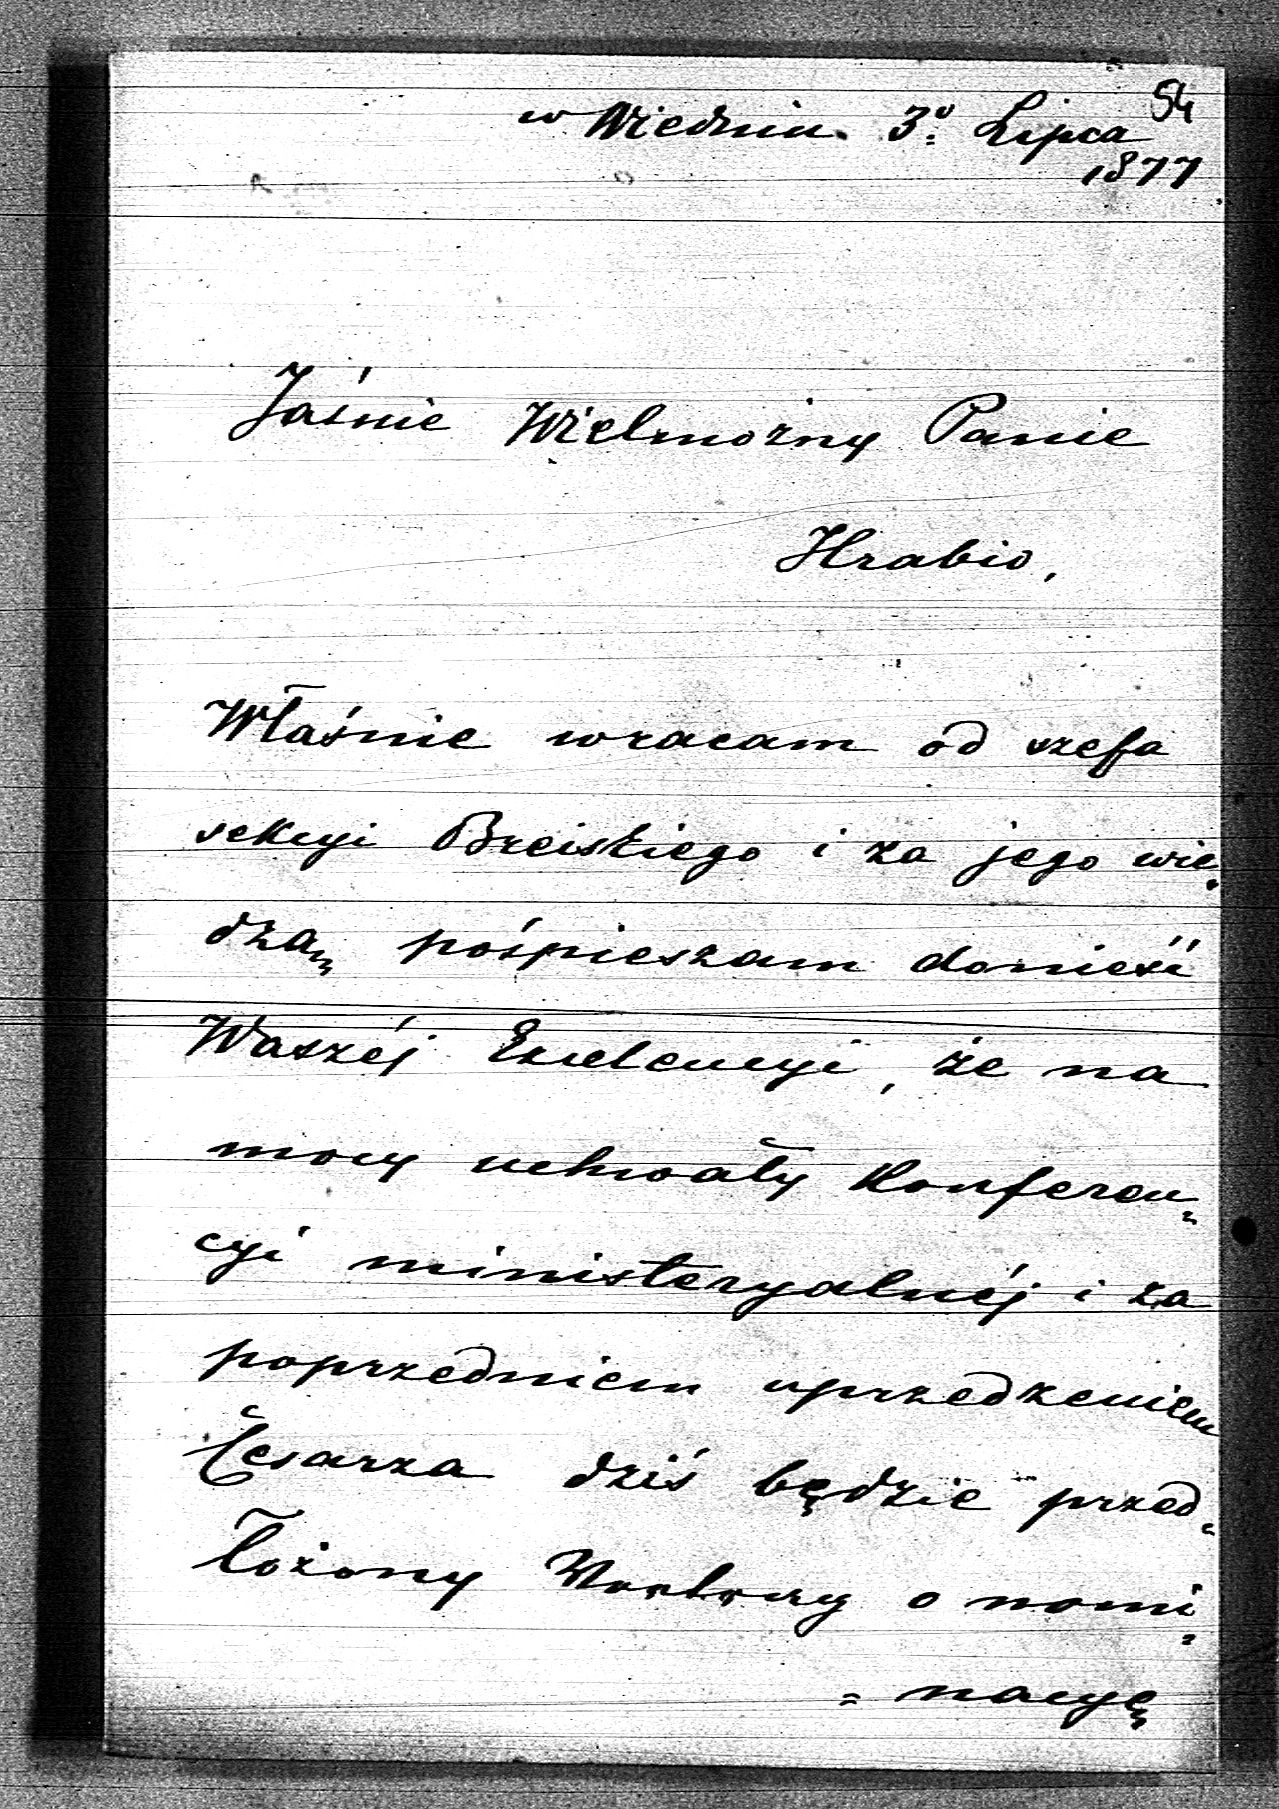 54
w Wiedniu 3º Lipca
1877
Jaśnie Wielmożny Panie
Hrabio,
Właśnie wracam od szefa
sekcyi Breiskiego i za jego wie=
dzą pośpieszam donieść
Waszéj Excelencyi, że na
mocy uchwały Konferen=
cyi ministeryalnéj i za
poprzedniem uprzedzeniem
Cesarza dziś będzie przed=
łożony Vortrag o nomi=
=nacyę